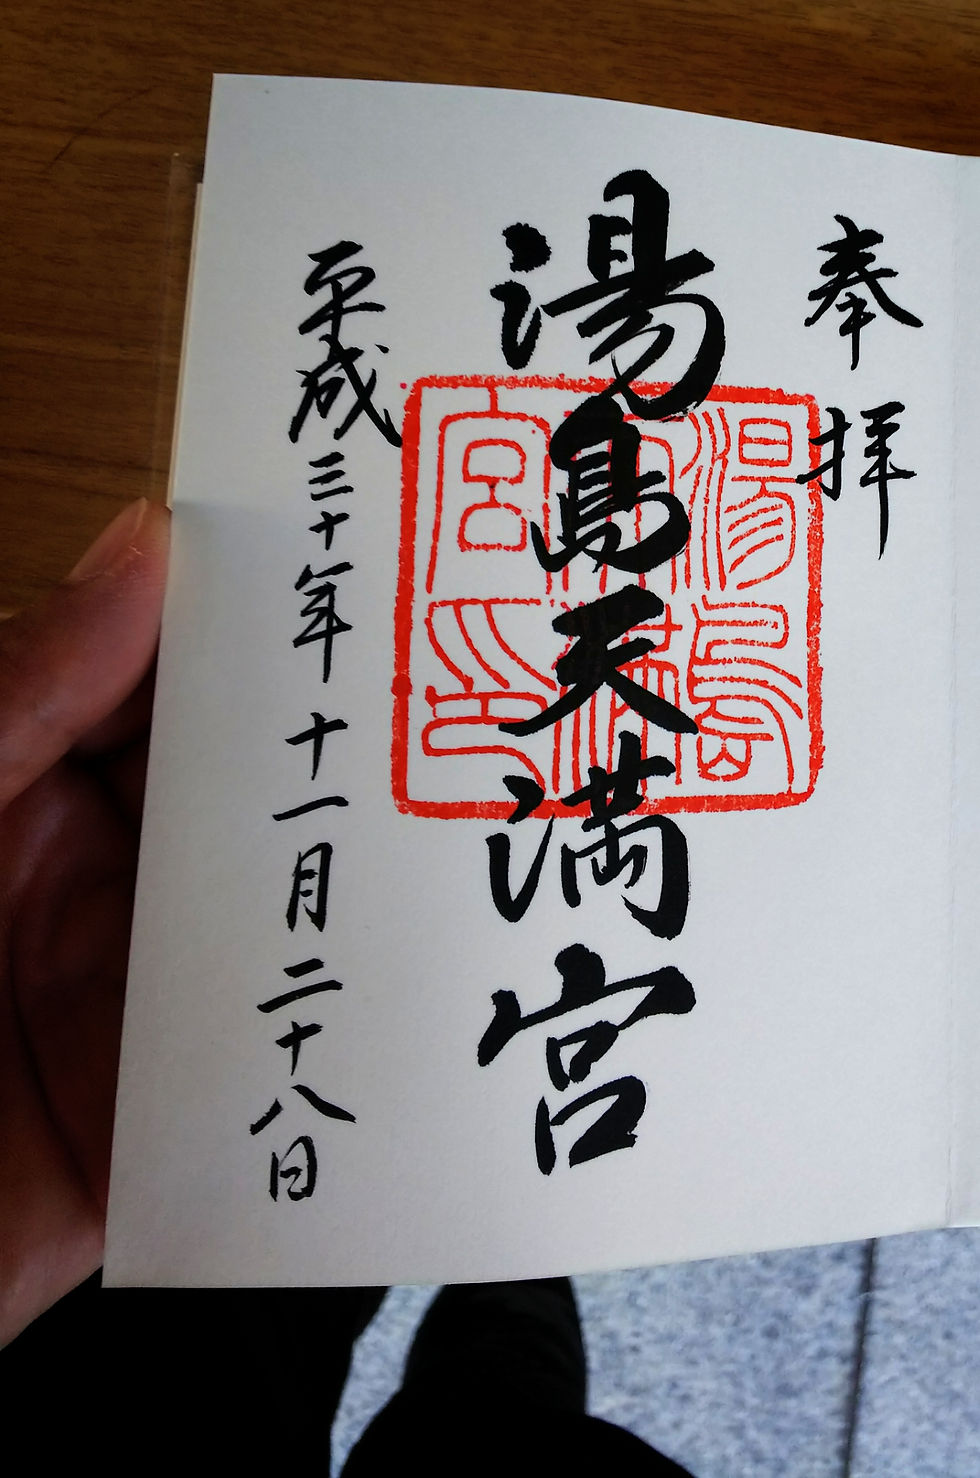 奉拝
湯島天満宮
湯島天満宮印
平成三十年十一月二十八日